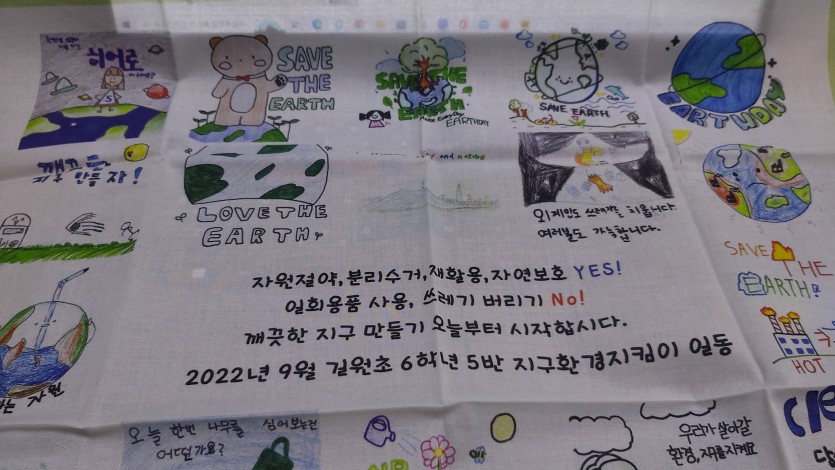 히어로
SAVE
THE
EARTH
SAVE THE
EARTH
EARTHDAY
SAVE EARTH
EARTHDAY
깨끗한
지구 만들자!
LOVE THE
EARTH
외계인도 쓰레기를 치웁니다.
여러분도 가능합니다.
SAVE
THE
EARTH!
HOT
자원절약,분리수거,재활용,자연보호 YES!
일회용품 사용, 쓰레기 버리기 No!
깨끗한 지구 만들기 오늘부터 시작합시다.
2022년 9월 길원초 6학년 5반 지구환경지킴이 일동
자원
오늘 한번 나무를 심어보는건
어떤가요?
우리가 살아갈
환경, 지켜요